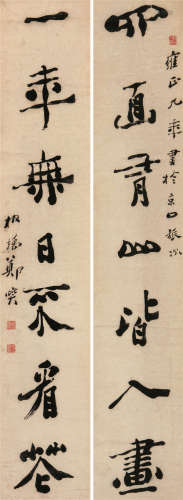 四面青山皆入畫
雍正九年書於京口旅次
一年無日不看花
板橋鄭燮